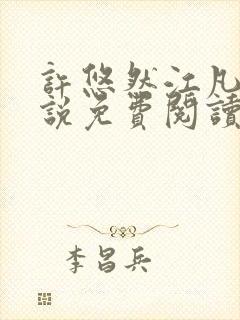 許悠然江凡
說免費閱讀
李昌兵